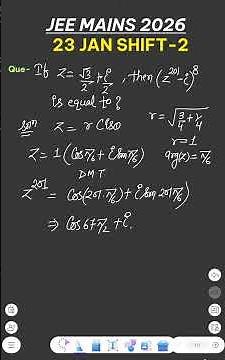 JEE MAINS 2026
23 JAN SHIFT-2
Que- If z = √3/2 + i/2, then (z^201 - i)^8
is equal to ?
Sol^n z = r Cisθ r = √(3/4 + 1/4)
r = 1
z = 1 (Cos π/6 + i Sin π/6) arg(z) = π/6
D M T
z^201 = Cos(201·π/6) + i Sin 201π/6)
⇒ Cos 67π/2 + i.